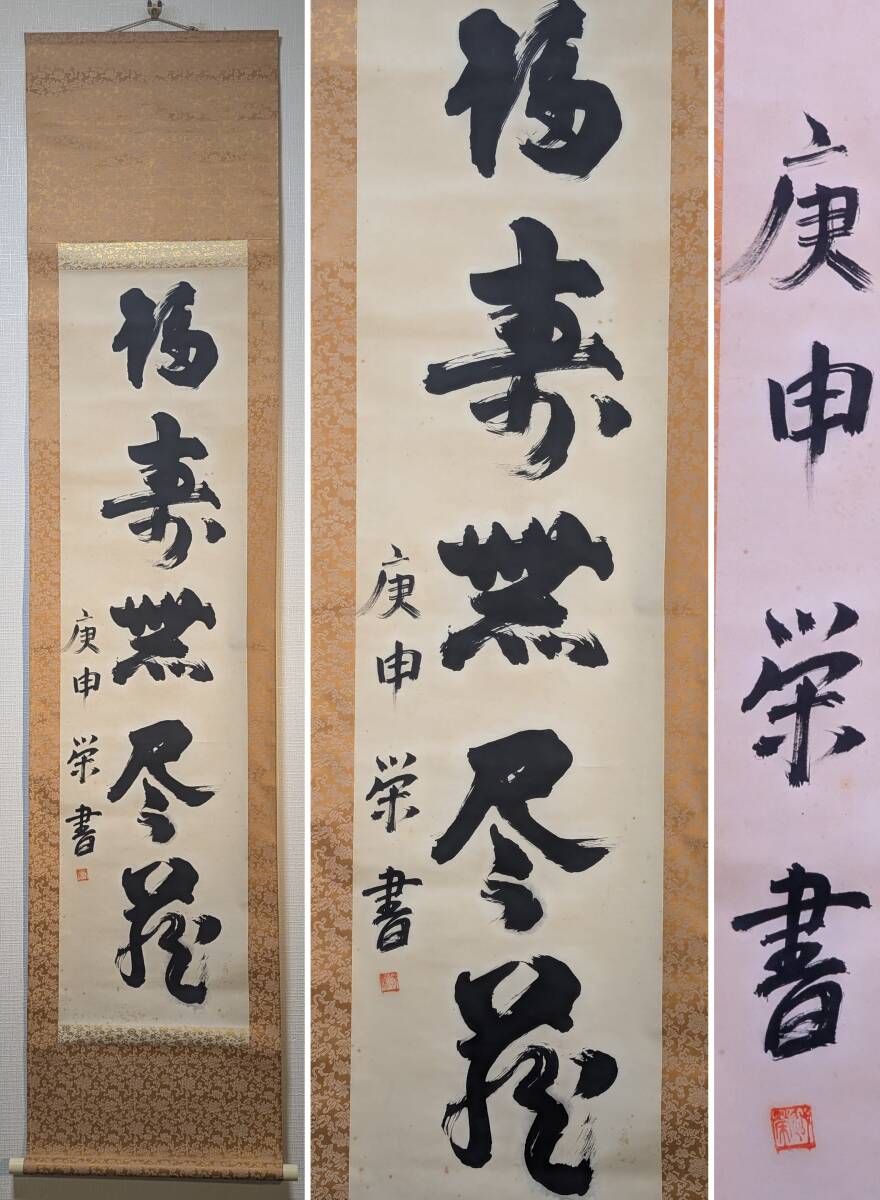 福寿無尽蔵
庚申 栄書
福寿無尽蔵
庚申 栄書
庚申栄書